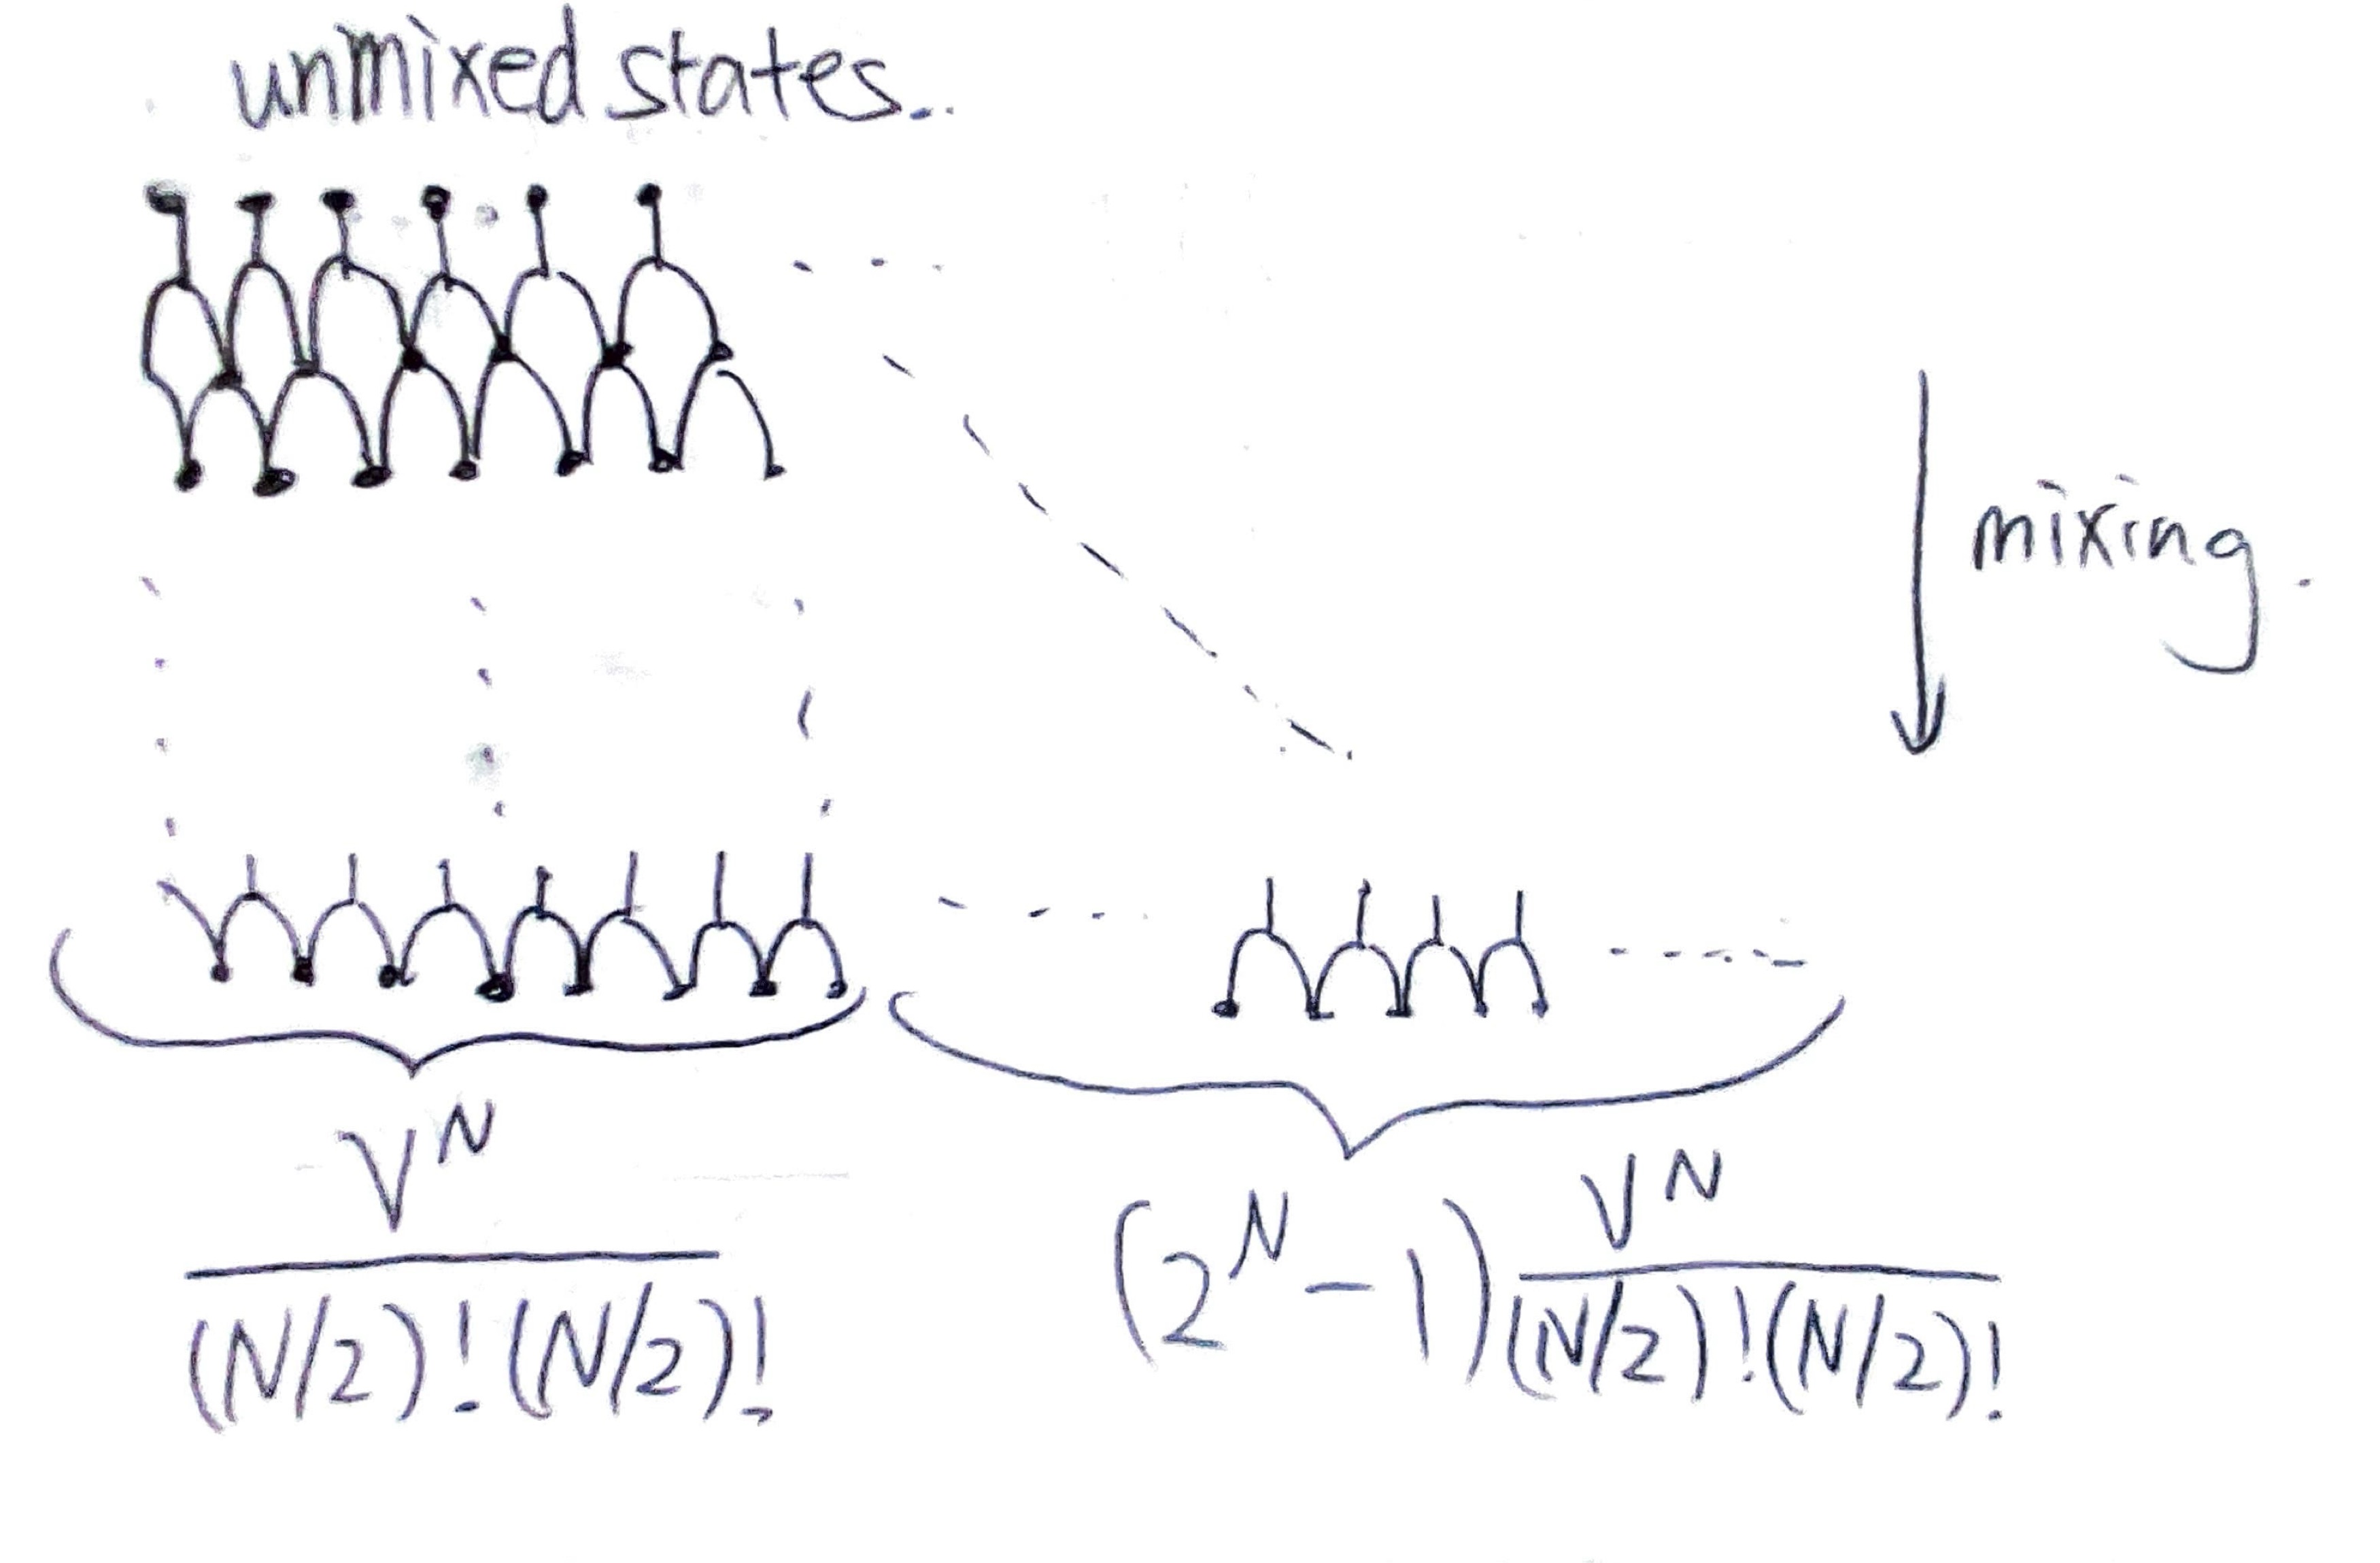 unmixed states..
mixing.
V^N
(N/2)!(N/2)!
(2^N-1) V^N
(N/2)!(N/2)!